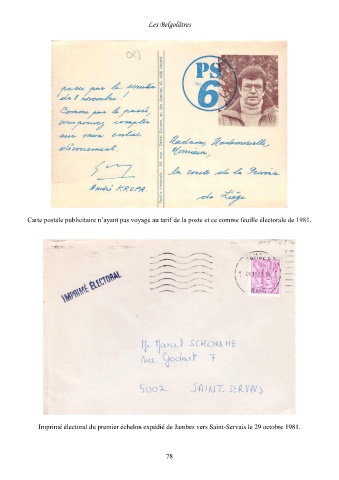 Les Belgolâtres
passe par le scrutin
du 8 novembre !
Comme par le passé
vous pouvez compter
sur mon entier
dévouement.
André KRUPA
PS
6
Madame, Mademoiselle,
Monsieur,
la
de Liège
Carte postale publicitaire n'ayant pas voyagé au tarif de la poste et ce comme feuille électorale de 1981.
IMPRIMÉ ÉLECTORAL
Mr Marcel
rue Godart 7
5002 SAINT-SERVAIS
Imprimé électoral du premier échelon expédié de Jambes vers Saint-Servais le 29 octobre 1981.
78